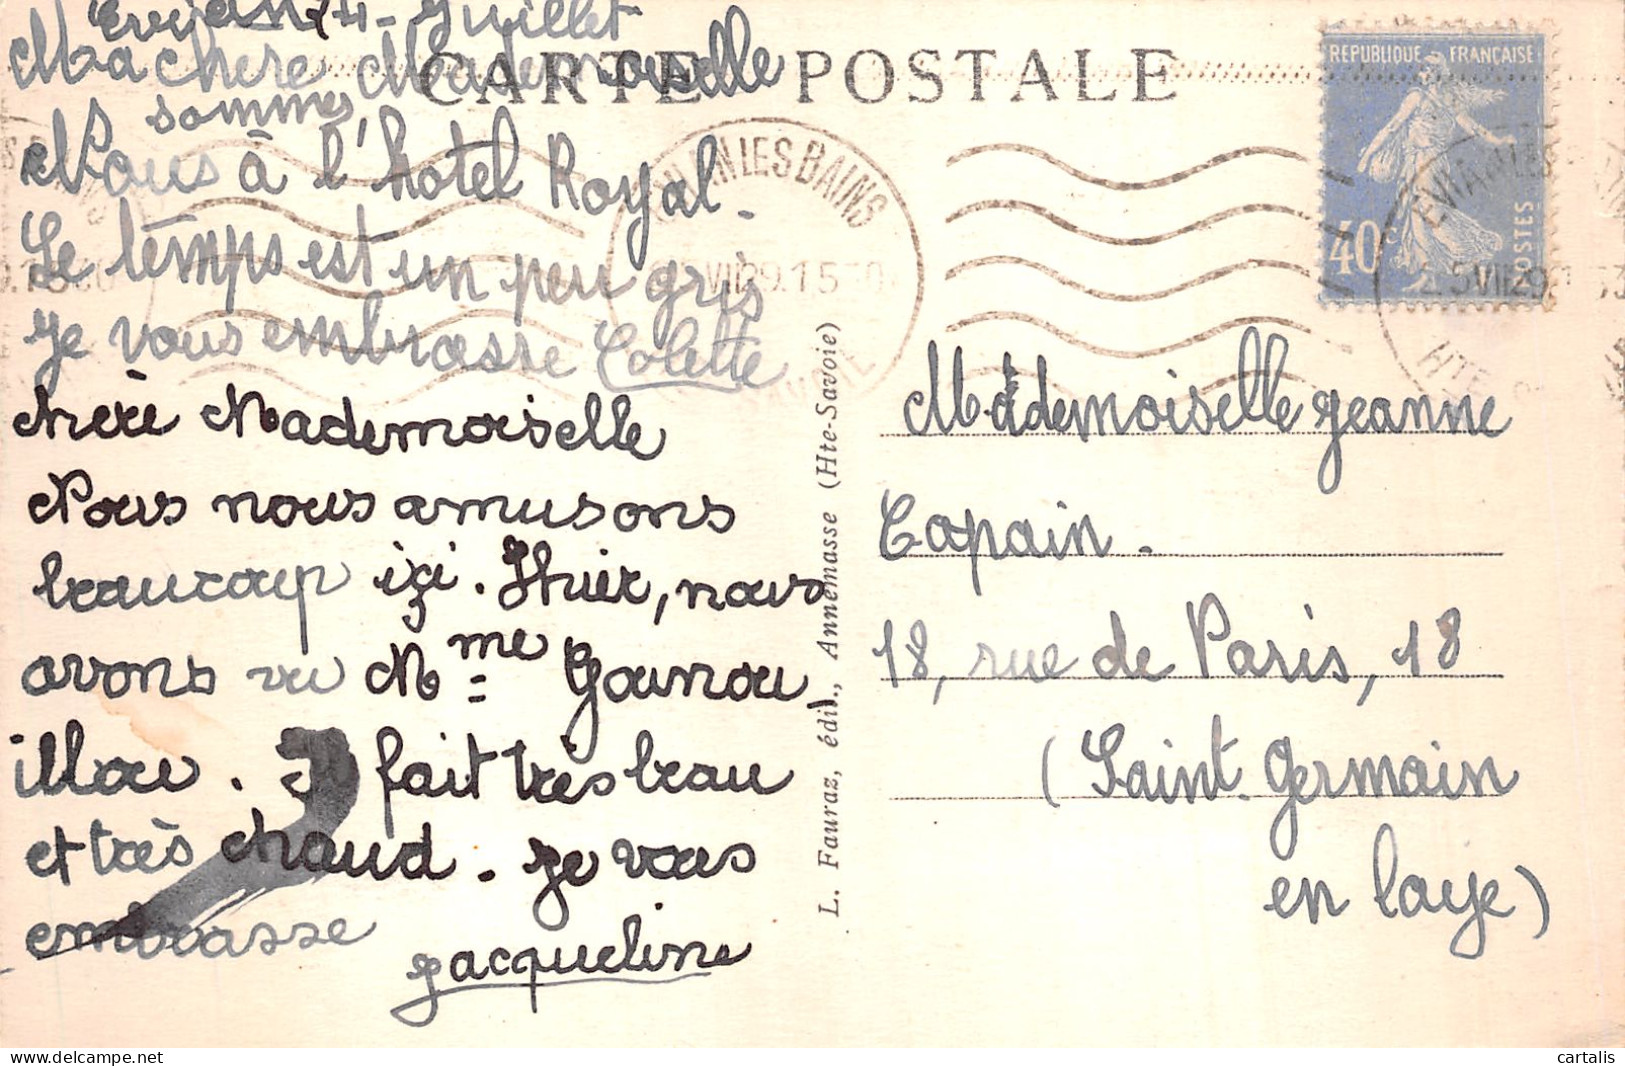 Evian 24 - Juillet
Ma chère Mademoiselle
sommes
Nous à l'hotel Royal.
Le temps est un peu gris
Je vous embrasse Colette
chère Mademoiselle
Nous nous amusons
beaucoup içi. Hier, nous
avons vu Mme Gounou
illou. Il fait très beau
et très chaud. Je vous
embrasse
Jacqueline
CARTE POSTALE
EVIAN LES BAINS
VII 29 15 30
SAVOIE
L. Fauraz, édit., Annemasse (Hte-Savoie)
REPUBLIQUE FRANÇAISE
40c
POSTES
EVIAN LES BAINS
25 VII 29 1530
HTE SAVOIE
Mademoiselle Jeanne
Copain.
18, rue de Paris, 18
(Saint-Germain
en Laye)
cartalis